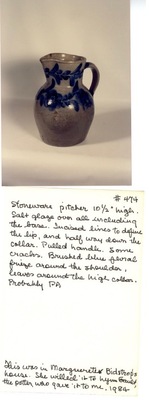 # 494
Stoneware pitcher 10½" high.
Salt glaze over all including
the base. Incised lines to define
the lip, and half way down the
collar. Pulled handle. Some
cracks. Brushed blue floral
fringe around the shoulder,
leaves around the high collar.
Probably PA
This was in Marguerette Bidstrup's
house. She willed it to
the potter who gave it to me, 1984